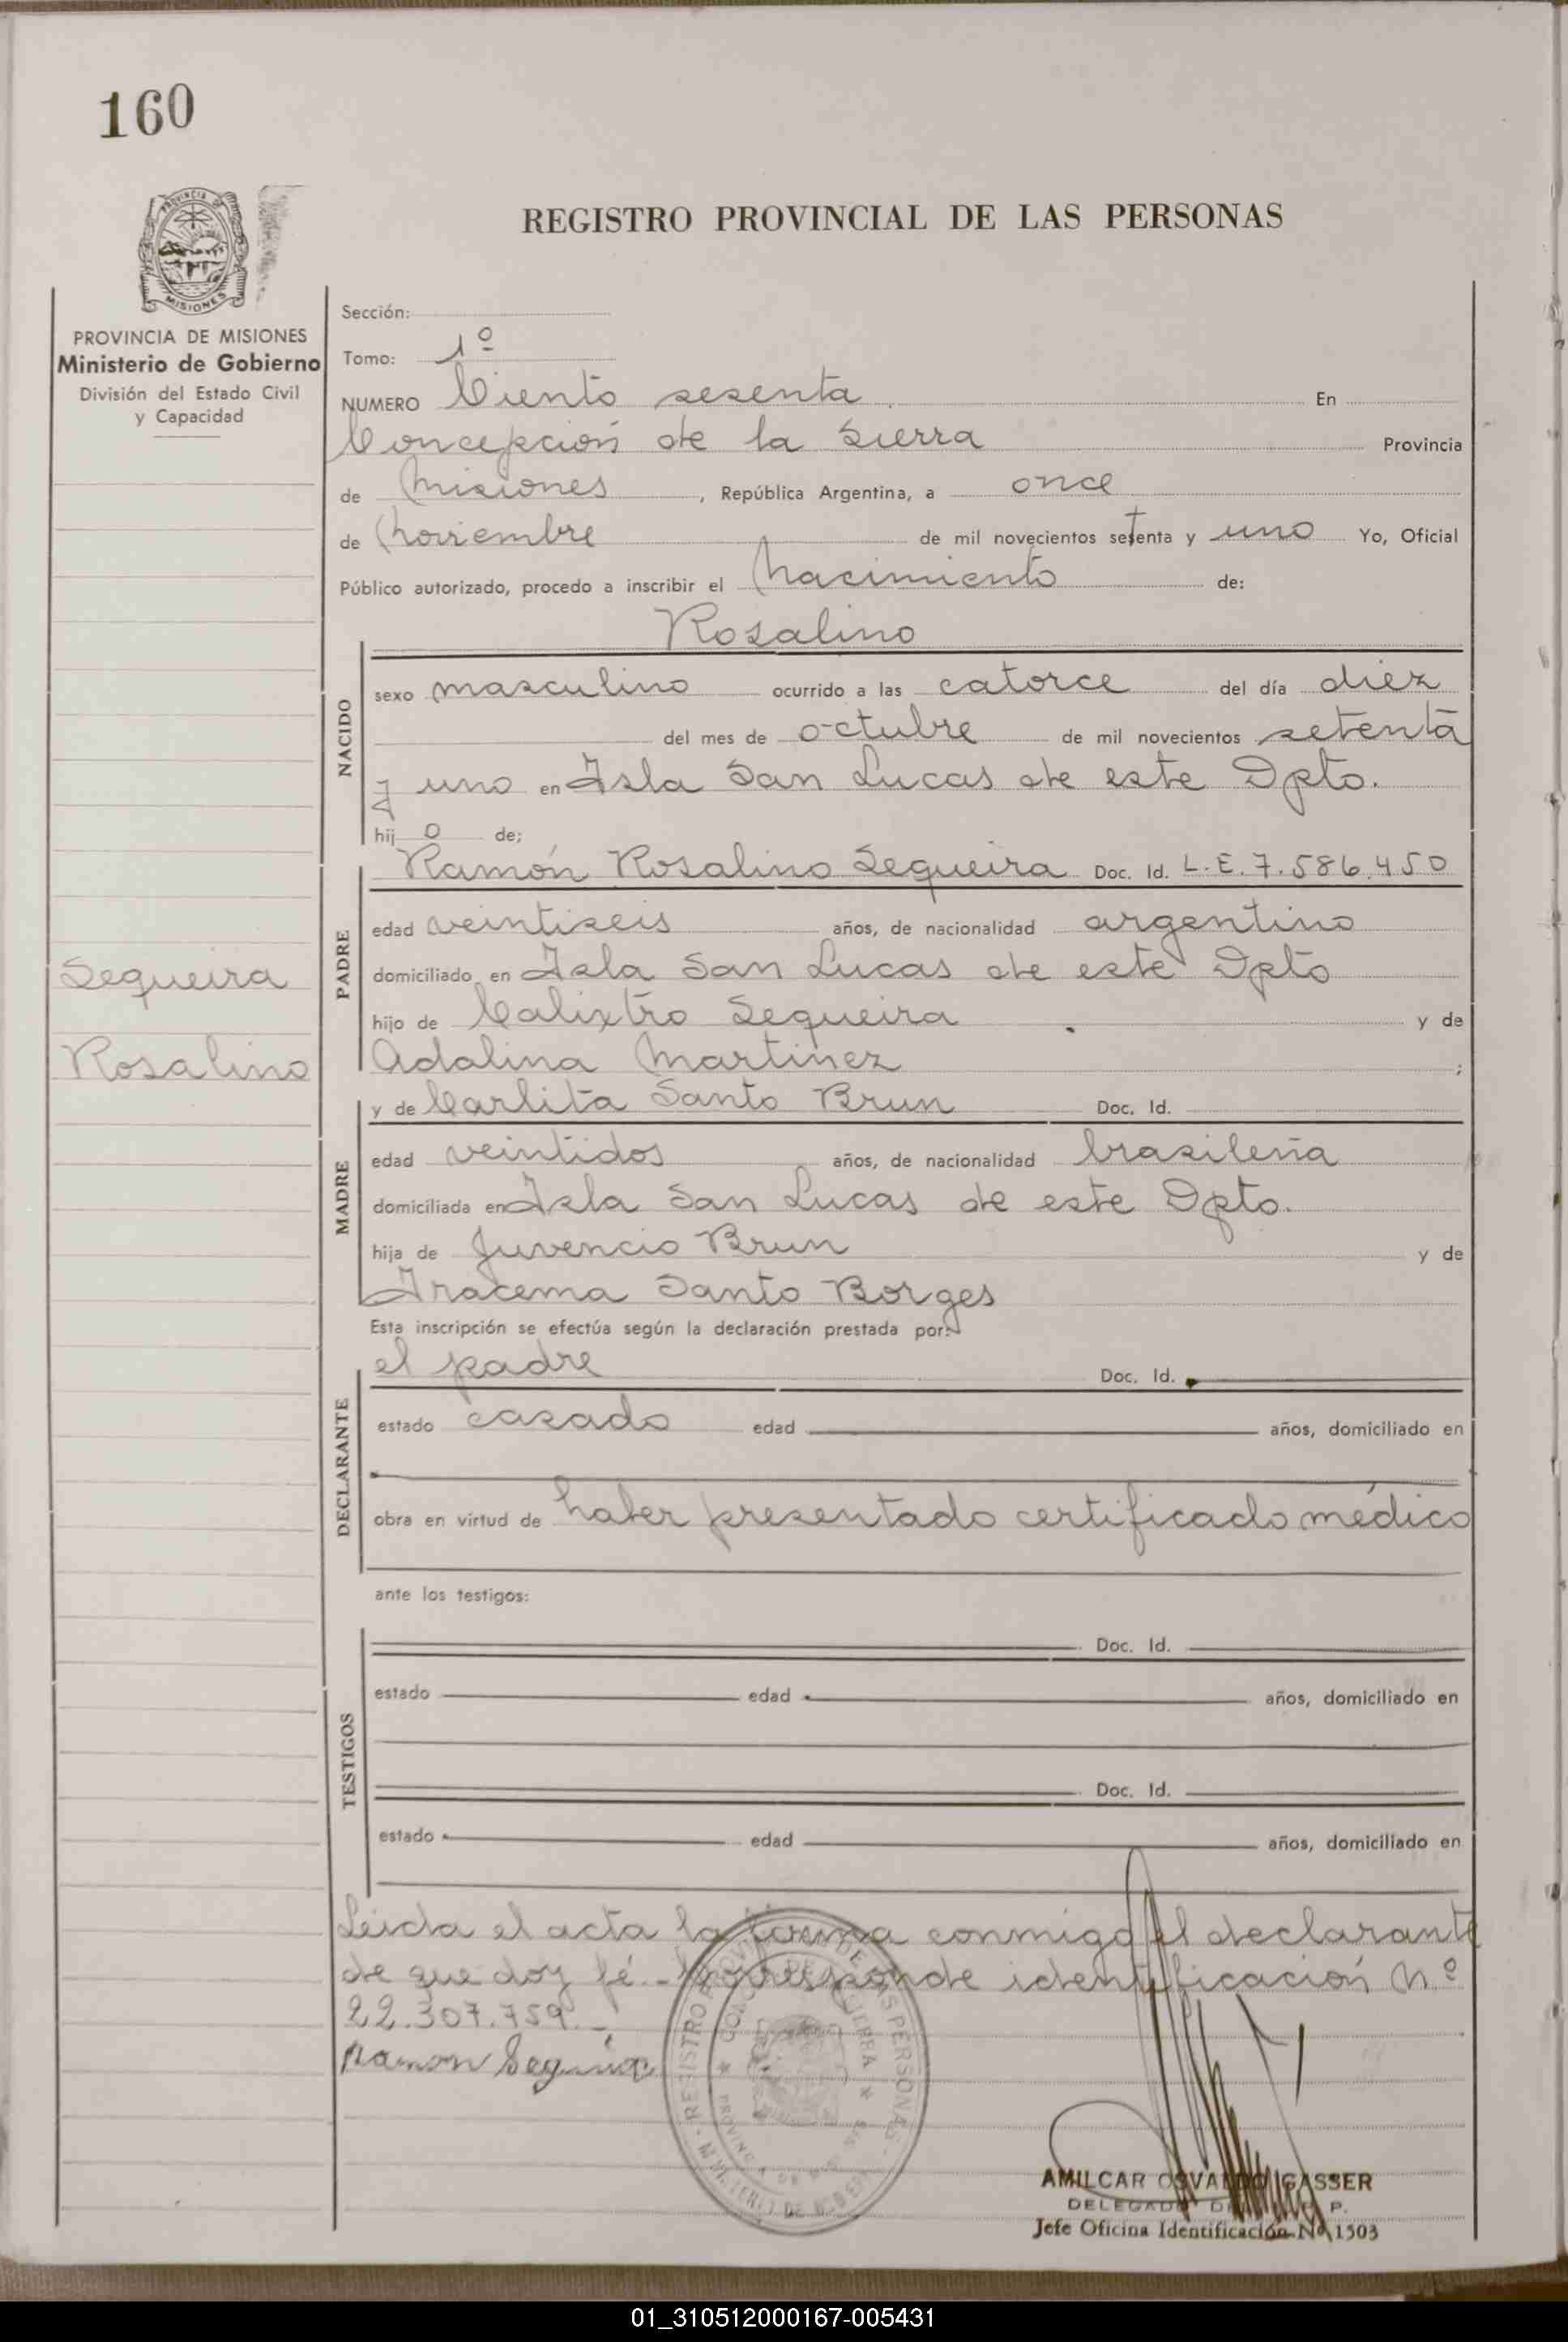 160
PROVINCIA DE
MISIONES
REGISTRO PROVINCIAL DE LAS PERSONAS
PROVINCIA DE MISIONES
Ministerio de Gobierno
División del Estado Civil
y Capacidad
Sequeira
Rosalino
Sección:
Tomo: 1º
NUMERO Ciento sesenta En
Concepción de la Sierra Provincia
de Misiones, República Argentina, a once
de Noviembre de mil novecientos setenta y uno Yo, Oficial
Público autorizado, procedo a inscribir el Nacimiento de:
Rosalino
NACIDO
sexo masculino ocurrido a las catorce del día diez
del mes de octubre de mil novecientos setenta
y uno en Isla San Lucas de este Dpto.
hijo de;
Ramón Rosalino Sequeira Doc. Id. L.E. 7.586.450
PADRE
edad veintiseis años, de nacionalidad argentino
domiciliado en Isla San Lucas de este Dpto
hijo de Calixtro Sequeira y de
Adalina Martinez ;
y de Carlita Santo Brun Doc. Id.
MADRE
edad veintidos años, de nacionalidad brasileña
domiciliada en Isla San Lucas de este Dpto.
hija de Juvencio Brun y de
Iracema Santo Borges
Esta inscripción se efectúa según la declaración prestada por:
el padre Doc. Id.
DECLARANTE
estado casado edad años, domiciliado en
obra en virtud de haber presentado certificado médico
ante los testigos:
TESTIGOS
Doc. Id.
estado edad años, domiciliado en
Doc. Id.
estado edad años, domiciliado en
Leida el acta la firma conmigo el declarante
de que doy fé.- Corresponde identificación Nº
22.307.759.-
Ramon Sequeira
REGISTRO PROVINCIAL DE LAS PERSONAS
AMILCAR OSVALDO GASSER
DELEGADO P.
Jefe Oficina Identificación Nº 1503
01_310512000167-005431